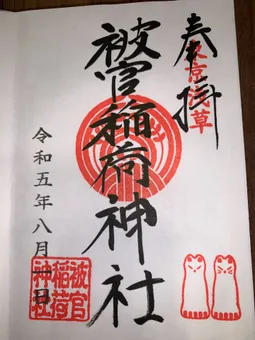 奉拝
東京浅草
被官稲荷神社
令和五年八月一日
被官
稲荷
神社